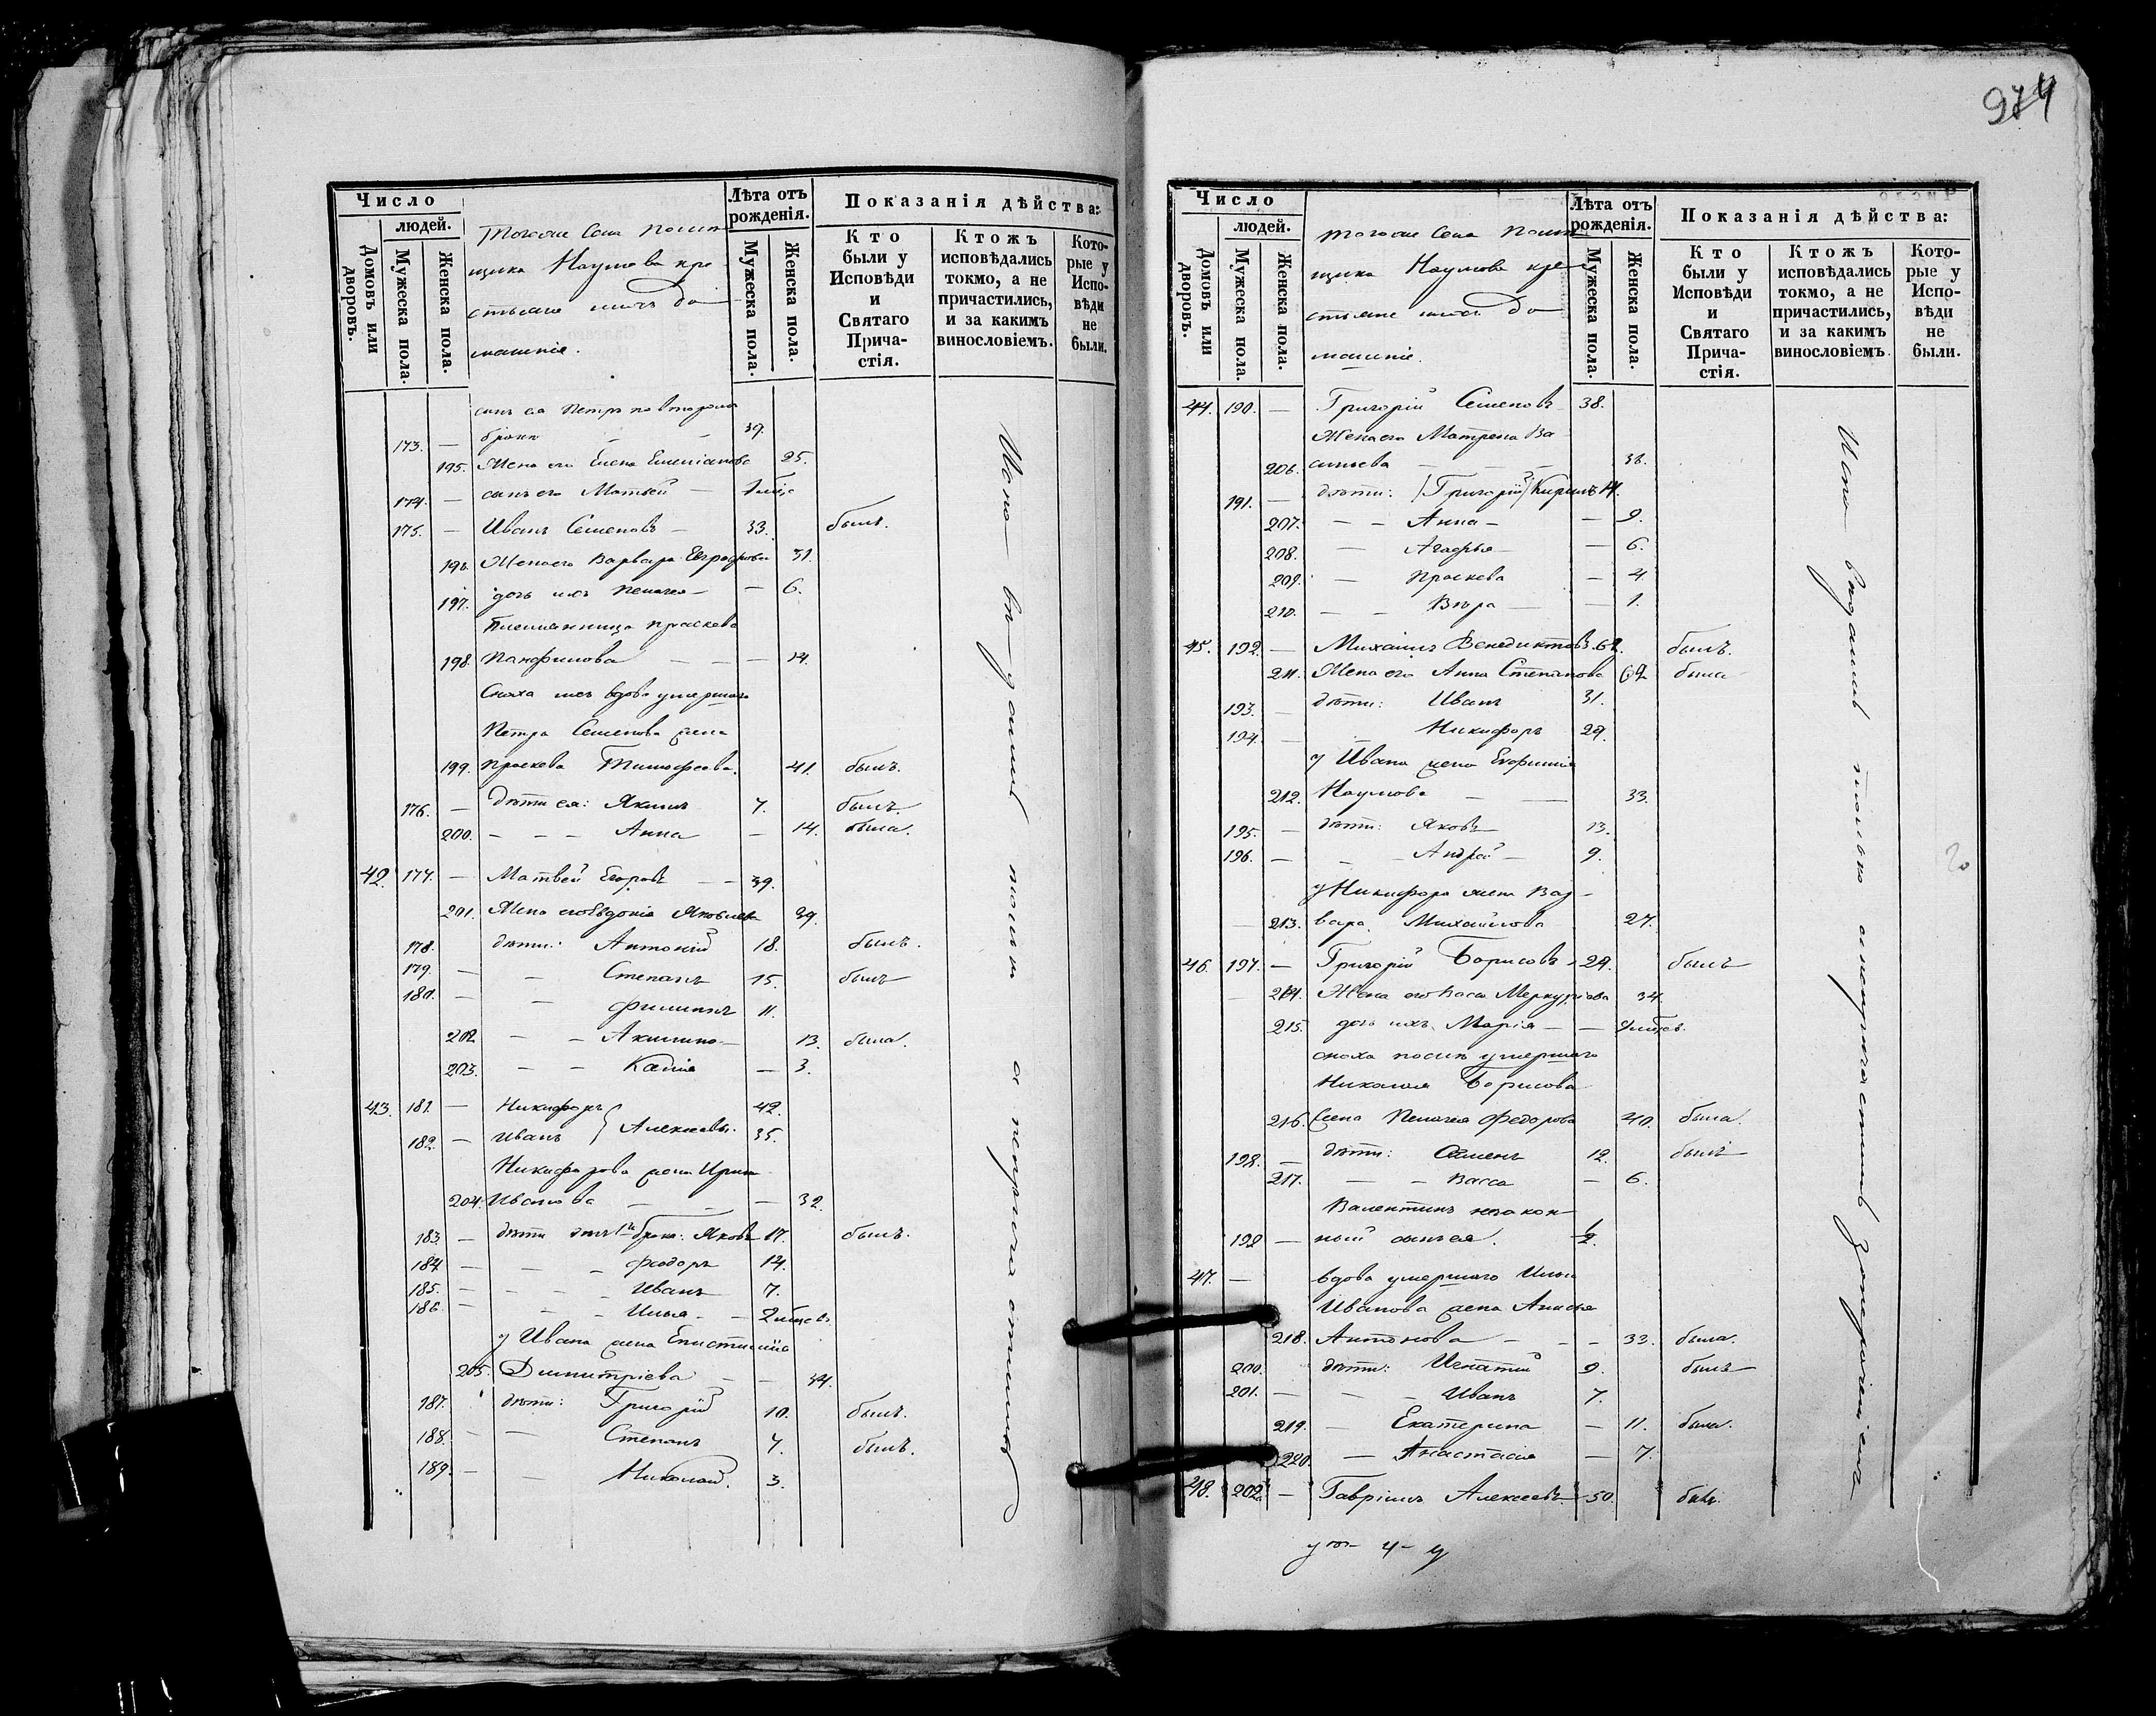 974
Число
людей.
Домовъ или дворовъ.
Мужеска пола.
Женска пола.
Тогоже Села помѣ
щика Наумова кре
стьяне и ихъ до
машніе.
Лѣта отъ рожденія.
Мужеска пола.
Женска пола.
Показанія дѣйства:
Кто были у Исповѣди и Святаго Прича-стія.
Ктожъ исповѣдались токмо, а не причастились, и за какимъ винословіемъ.
Кото-рые у Испо-вѣди не были.
сынъ ея Петръ повтораго
173. — брака — — 39.
195. Жена его Елена Емеліанова 25.
174. — сынъ его Матвей —
175. — Иванъ Семеновъ — 33. былъ.
196. Жена его Варвара Евграфова 31.
197. дочь ихъ Пелагея — — 6.
Племянница Праскева
198. Панфилова — — — 14.
Сноха ихъ вдова умершаго
Петра Семенова жена
199. Праскева Тимофеева. 41. былъ.
176. — Дѣти ея: Якимъ 7. былъ.
200. — — — Анна — 14. была.
42. 177. — Матвей Егоровъ — — 39.
201. Жена его Евдокія Яковлева 39.
178. дѣти: Антоній 18. былъ.
179. — — Степанъ 15. былъ
180. — — Филиппъ 11.
202 — — Акилина — 13. была.
203. — — Калiя — 3.
43. 181. — Никифоръ 42.
182. — Иванъ } Алексеевы. 35.
Никифорова жена Ирина
204. Иванова — — — 32.
183. — дѣти отъ 1го брака: Яковъ 17. былъ.
184 — — — Феодоръ 14.
185. — — — Иванъ 7.
186. — — — Илья — — 2 мѣсецъ
у Ивана жена Епистимiя
205. Димитріева — — 34.
187. дѣти: Григорій 10. былъ.
188. — — Степанъ 7. былъ.
189. — — Николай. 3.
Число
людей.
Домовъ или дворовъ.
Мужеска пола.
Женска пола.
тогоже Села помѣ
щика Наумова кре
стьяне ихъ до
машніе.
Лѣта отъ рожденія.
Мужеска пола.
Женска пола.
Показанія дѣйства:
Кто были у Исповѣди и Святаго Прича-стія.
Ктожъ исповѣдались токмо, а не причастились, и за какимъ винословіемъ.
Кото-рые у Испо-вѣди не были.
44. 190. — Григорій Семеновъ 38.
Жена его Матрена Ва
206. сильева — — — 38.
191. — дѣти: (Григорій) Кирилъ 14.
207. — — Анна — — 9.
208. — Агафья — — 6.
209. — Праскева — 4.
210. — — Вѣра — — 1.
45. 192. — Михаилъ Венедиктовъ. 62. былъ.
211. Жена его Анна Степанова 62 была
193. — дѣти: Иванъ 31.
194. — — Никифоръ 29.
у Ивана жена Евфимія
212. Наумова — — 33.
195. — дѣти: Яковъ 13.
196. — — — Андрей — 9.
у Никифора жена Вар —
213. вара Михайлова 27.
46. 197. — Григорій Борисовъ — 29. былъ
214. Жена его Васса Меркуріева 34.
215. дочь ихъ Марія — —
сноха послѣ умершаго
Николая Борисова
216. жена Пелагея Федорова 40. была.
198. — дѣти: Семенъ 12. былъ
217. — — Васса — 6.
Валентинъ незакон
199 — ный сынъ ея.
47. — вдова умершаго Ильи
Иванова жена Анисья
218. Антонова — — — 33. была.
200. дѣти: Игнатій 9. былъ
201. — — — Иванъ 7.
219. — Екатерина — 11. была.
220. — Анастасія — 7.
48. 202. — Гавріилъ Алексеевъ 50. былъ.